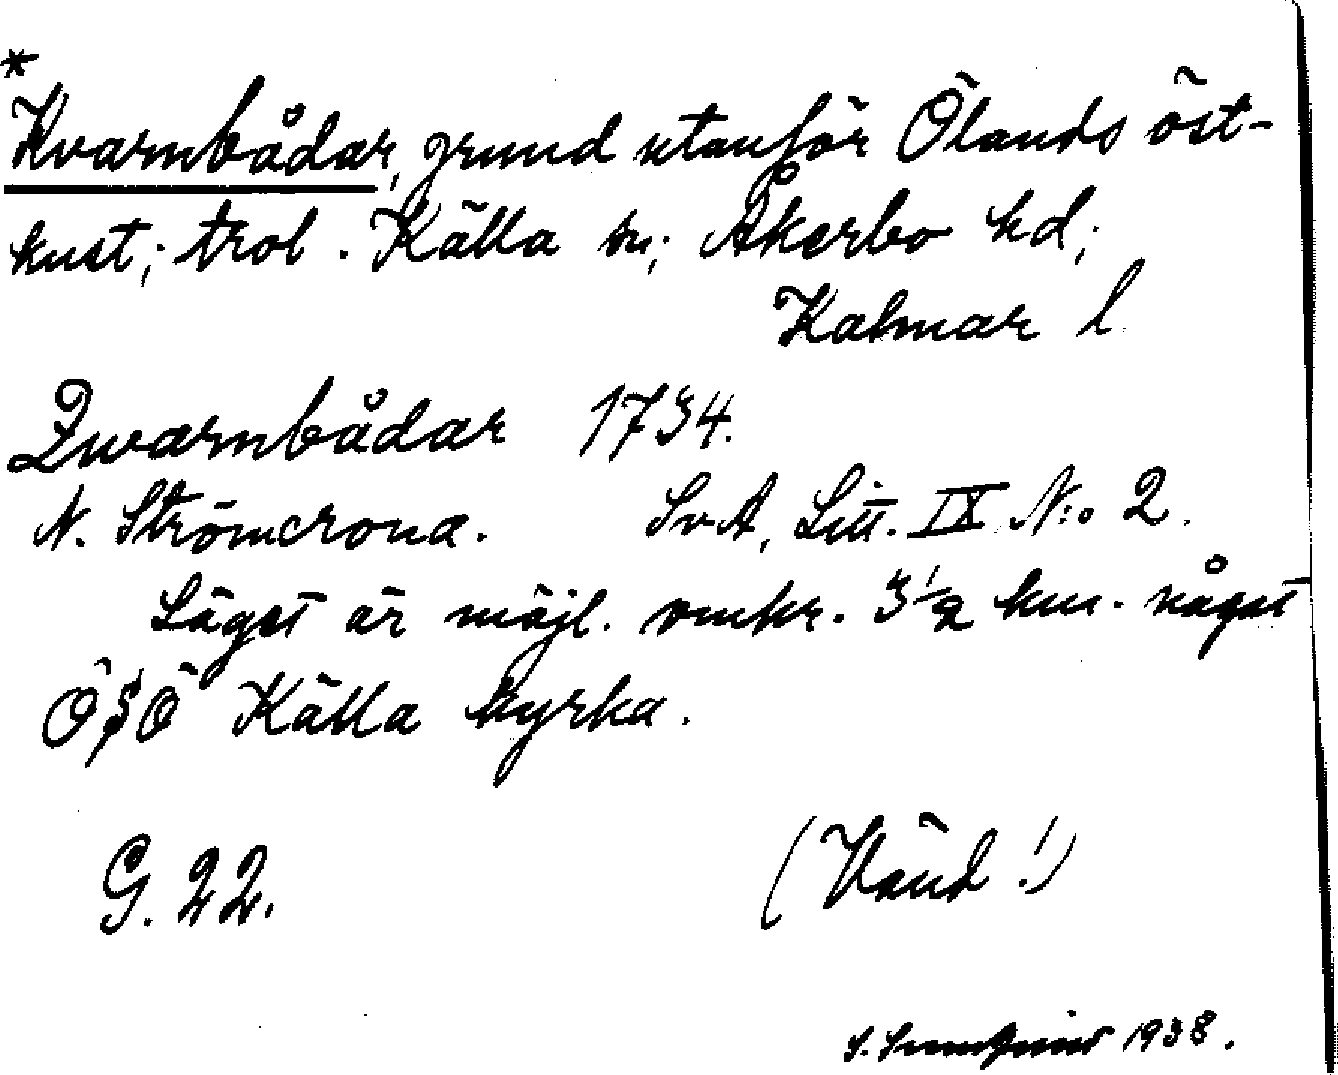 *
Kvarnbådar, grund utanför Ölands öst-
kust; trol. Källa sn; Åkerbo hd;
Kalmar l.
Qwarnbådar 1734.
N. Strömcrona. SvA, Litt. IX N:o 2.
Läget är möjl. omkr. 3 1/2 km. något
ÖSÖ Källa kyrka.
G. 22. (Vänd!)
S. 1938.